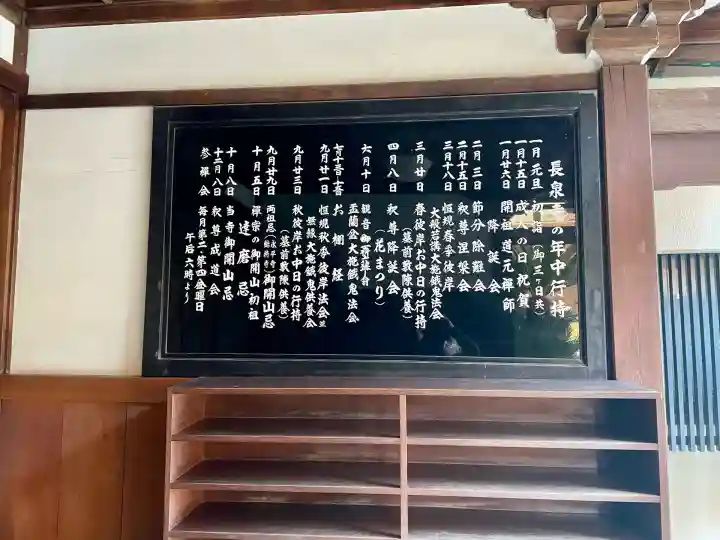 長泉寺の年中行持
一月元旦 初詣（御三ヶ日共）
一月十五日 成人の日祝賀
一月廿六日 開祖道元禅師
降誕会
二月三日 節分除難会
二月十五日 釈尊涅槃会
三月十八日 恒規春季彼岸
大般若講大施餓鬼法会
三月廿日 春彼岸お中日の行持
（墓前散陳供養）
四月八日 釈尊降誕会
（花まつり）
六月十日 観音
盂蘭会大施餓鬼法会
お棚経
九月廿一日 恒規秋季彼岸法会並
無縁大施餓鬼供養会
九月廿三日 秋彼岸お中日の行持
（墓前散陳供養）
九月廿九日 両祖忌（永平寺 総持寺）御開山忌
十月五日 禅宗の御開山初祖
達磨忌
十月八日 当寺御開山忌
十二月八日 釈尊成道会
参禅会 毎月第二・第四金曜日
午后六時より